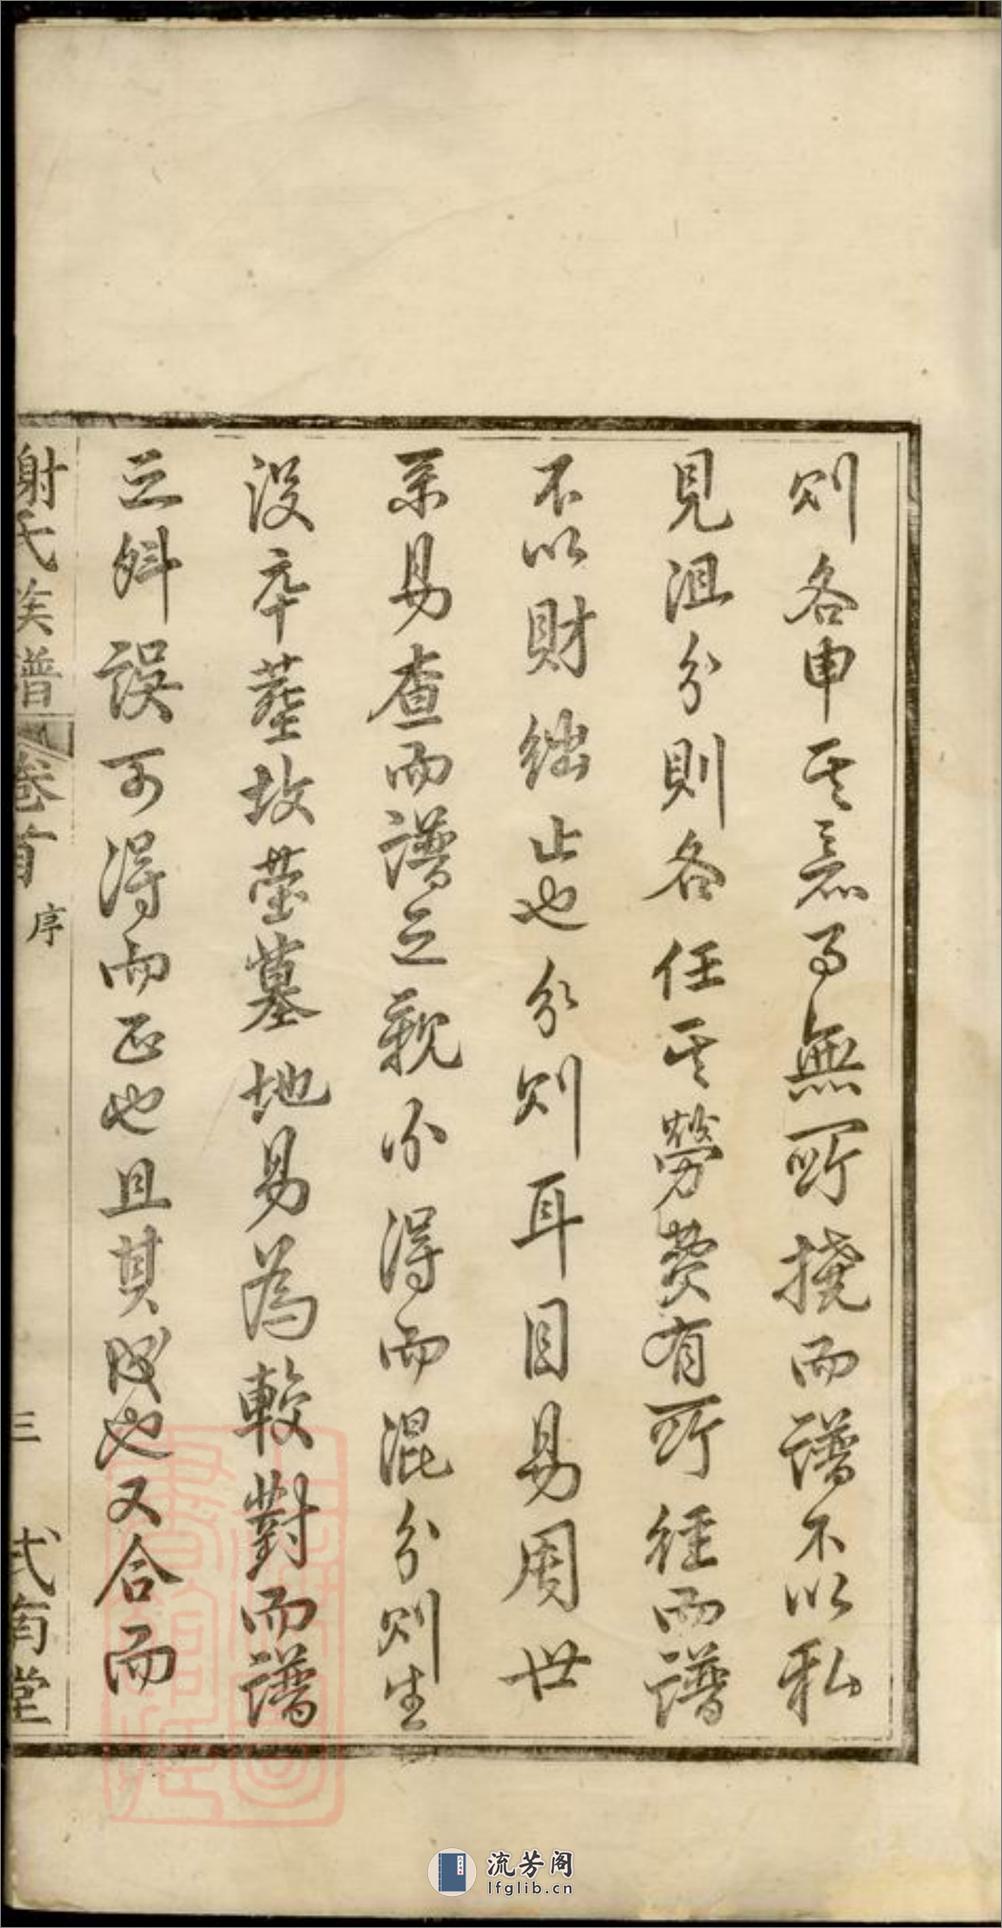 則各申其意而無所撓而譜不以私
見沮分則各任其勞費有所經而譜
不以財絀止也分則耳目易周世
系易查而譜之親不得而混分則生
沒卒葬故塋墓地易為較對而譜
之舛誤可得而正也且其成也又合而
謝氏族譜
卷首
序
三
式南堂
流芳阁
lfglib.cn